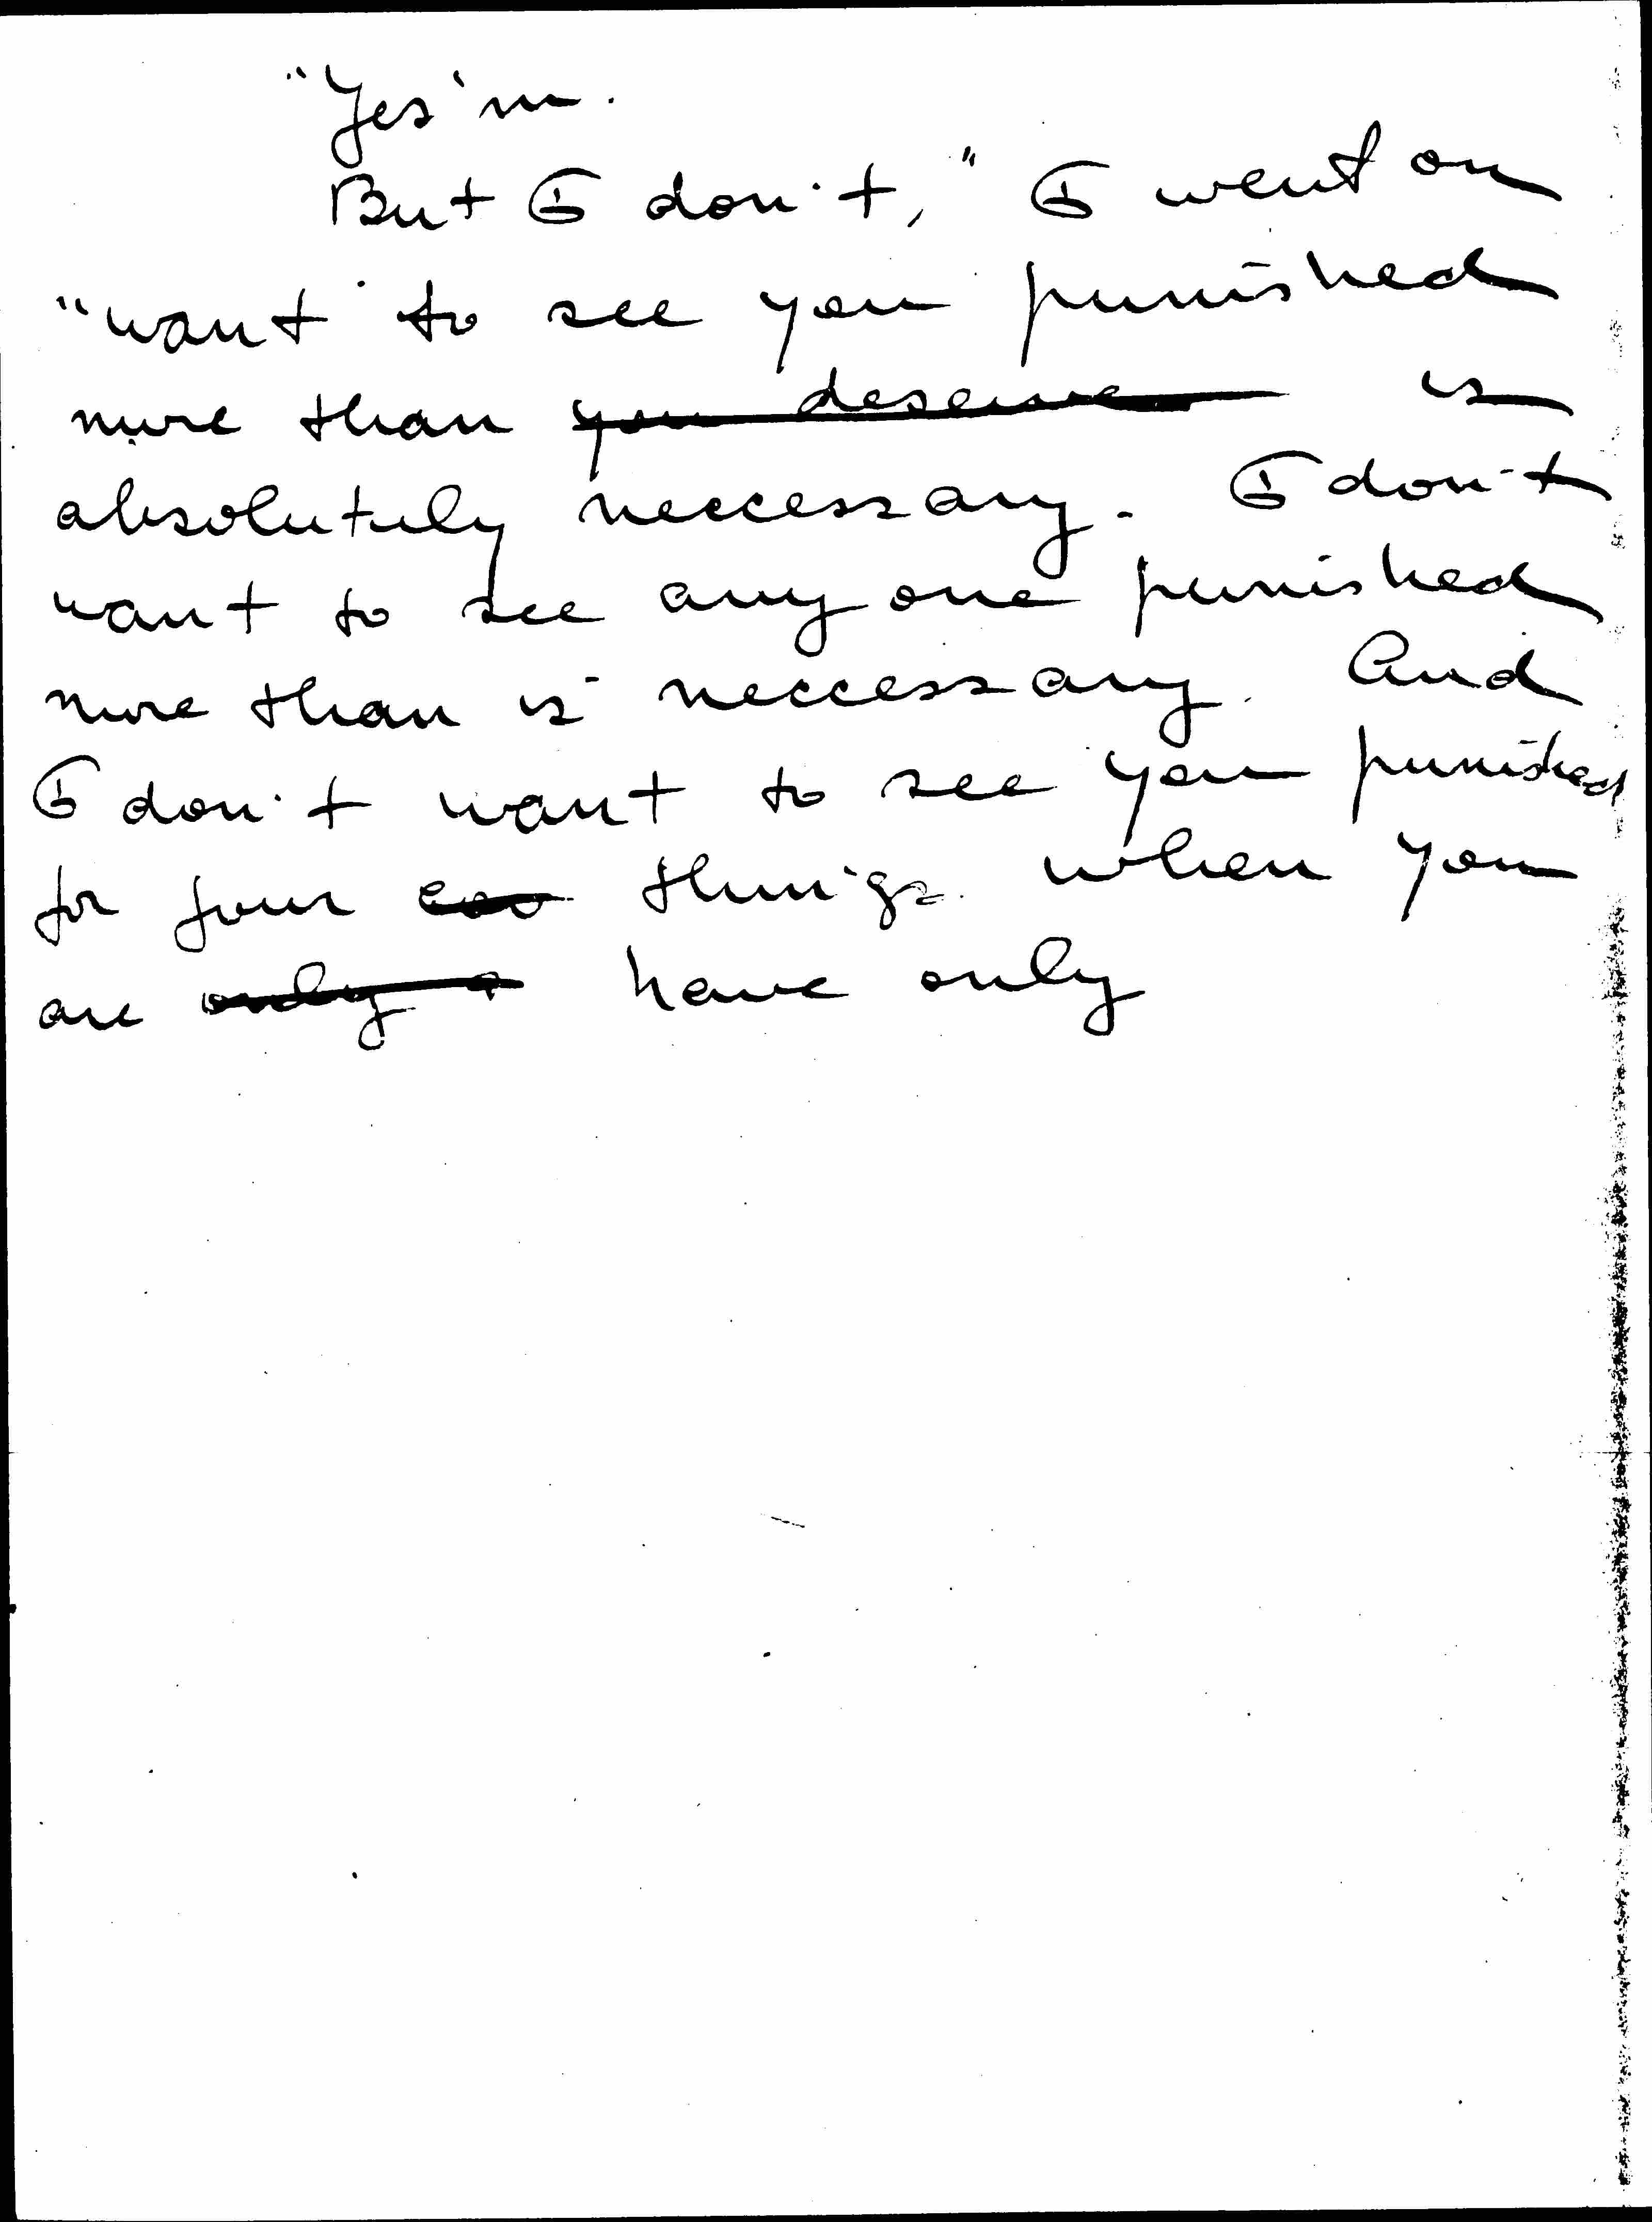 "Yes'm.
But I don't," I went on
"want to see you punished
more than you deserve is
absolutely neccessary. I don't
want to see anyone punished
more than is neccessary. And
I don't want to see you punished
for four things when you
are only a have only